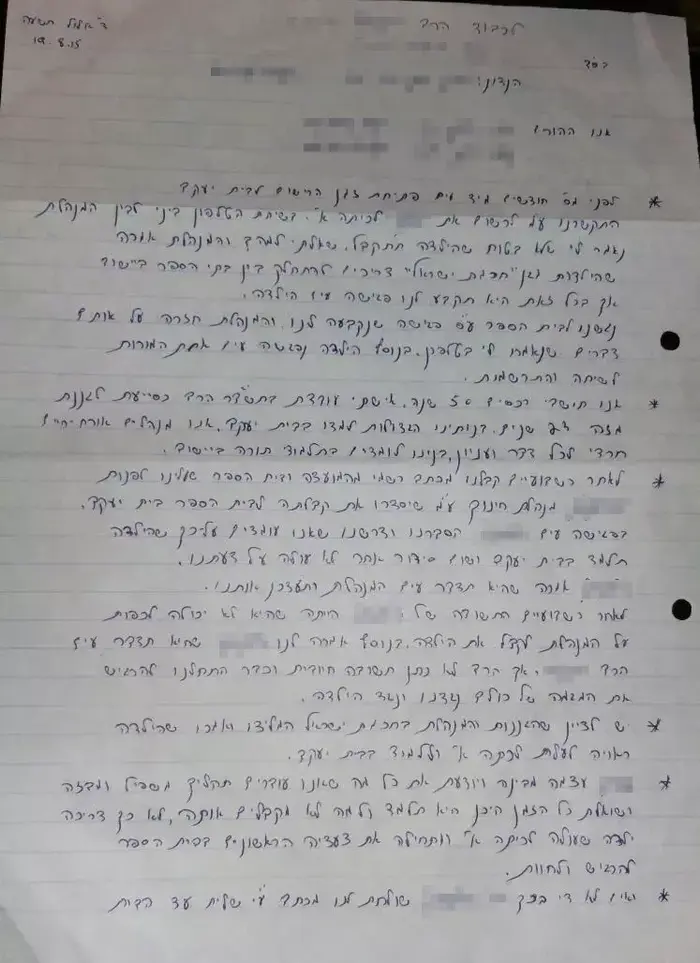 ד' אלול תשע"ה
19.8.15
לכבוד הרב
בס"ד
הנדון:
אנו ההורים
* לפני מס' חודשים מיד עם פתיחת זמן הרישום לבית יעקב
התקשרנו על מנת לרשום את לכיתה א'. בשיחת הטלפון ביני לבין המנהלת
נאמר לי שלא בטוח שהילדה תתקבל, שאלתי למה? והמנהלת אמרה
שהילדות מגן "חכמת ישראל" צריכים להתחלק בין בתי הספר ביישוב
אך בכל זאת היא תקבע לנו פגישה עם הילדה.
נגשנו לבית הספר עם פגישה שנקבעה לנו, והמנהלת חזרה על אותם
דברים שנאמרו לי בטלפון. בנוסף הילדה נפגשה עם אחת המורות
לשיחה והתרשמות.
* אנו תושבי רכסים 50 שנה, אשתי עובדת כסייעת לגננת
מזה שנים, בנותינו הגדולות למדו בבית יעקב, אנו מנהלים אורח חיים
חרדי לכל דבר ועניין, בנינו לומדים בתלמוד תורה ביישוב.
* לאחר כשבועיים קבלנו מכתב רשמי מהמועצה ובית הספר שעלינו לפנות
מנהלת חינוך ע"מ שיסדרו את קבלתה לבית הספר בית יעקב.
בפגישה עם הסברנו ודרשנו שאנו עומדים על כך שהילדה
תלמד בבית יעקב ושום סידור אחר לא עולה על דעתנו.
אמרה שהיא תדבר עם המנהלת ותעדכן אותנו.
לאחר כשבועיים התשובה של הייתה שהיא לא יכולה לכפות
על המנהלת לקבל את הילדה, בנוסף אמרה לנו שהיא תדבר עם
הרב , אך הרב לא נתן תשובה חיובית וכבר התחלנו להרגיש
את המגמה של כולם נגדנו ונגד הילדה.
* יש לציין שהגננות והמנהלת בחכמת ישראל המליצו ואמרו שהילדה
ראויה לעלות לכתה א' וללמוד בבית יעקב.
* עצמה מבינה ויודעת את כל מה שאנו עוברים תהליך משפיל ומבזה
ושואלת כל הזמן היכן היא תלמד ולמה לא מקבלים אותה, לא כך צריכה
ילדה שעולה לכיתה א' ומתחילה את צעדיה הראשונים בבית הספר
להרגיש ולחוות.
* ואם לא די בכך שולחת לנו מכתב ע"י שליח עד הבית